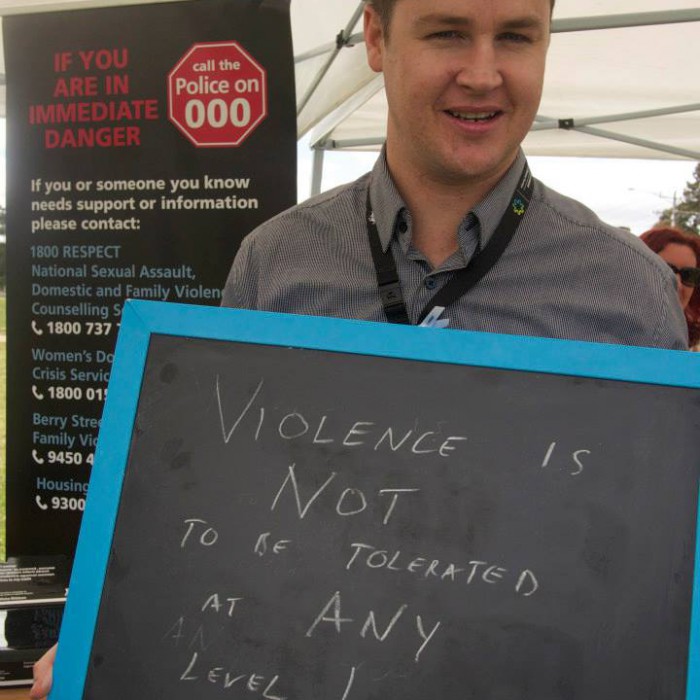 IF YOU
ARE IN
IMMEDIATE
DANGER
call the
Police on
000
If you or someone you know
needs support or information
please contact:
1800 RESPECT
National Sexual Assault,
Domestic and Family
Counselling
1800 737
Women's
Crisis
1800
Berry
Family
9450
9300
VIOLENCE IS
NOT
TO BE TOLERATED
AT ANY
LEVEL !